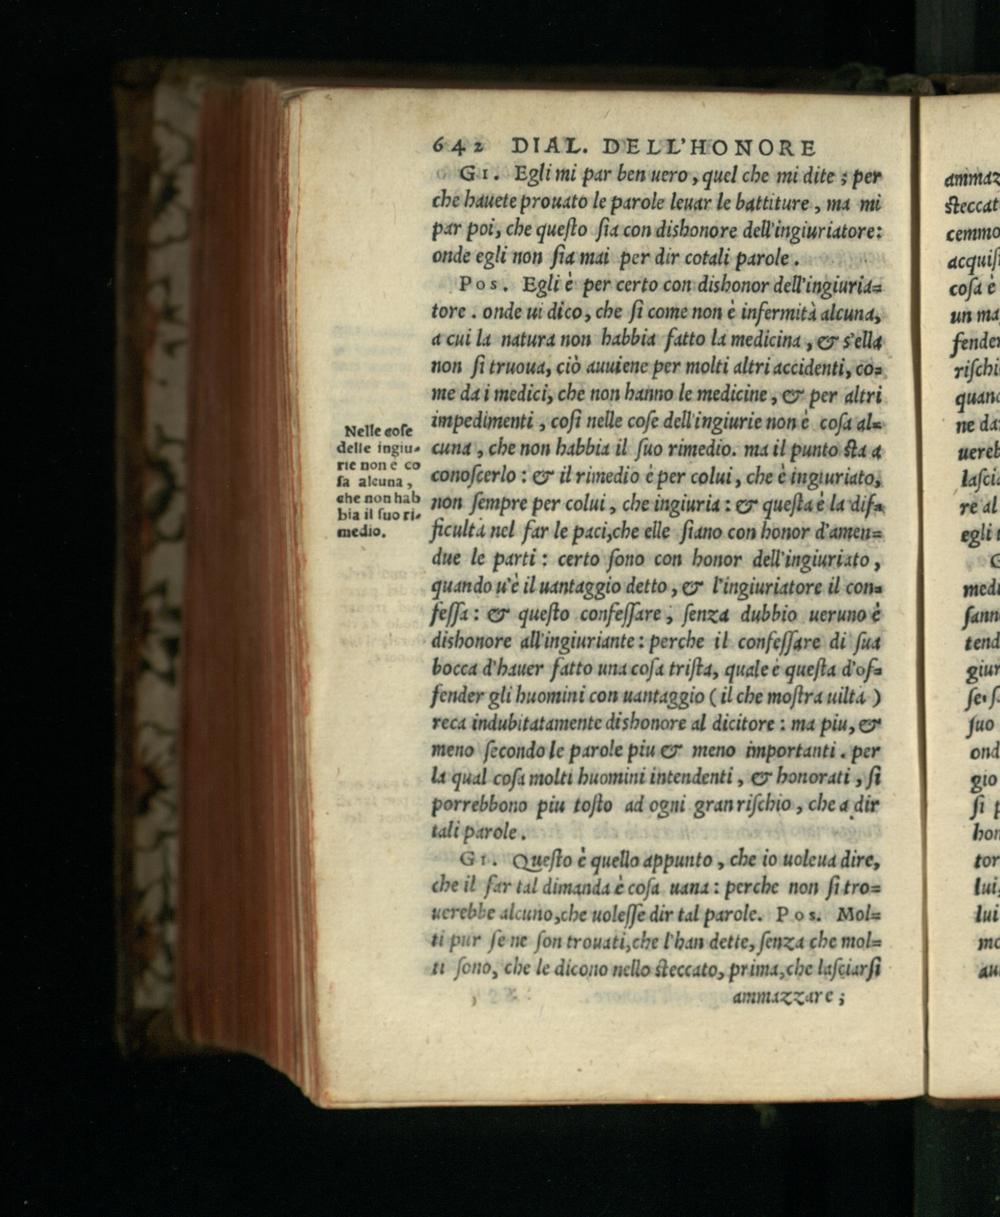 642 DIAL. DELL'HONORE
GI. Egli mi par ben uero, quel che mi dite; per
che hauete prouato le parole leuar le battiture, ma mi
par poi, che questo sia con dishonore dell'ingiuriatore:
onde egli non sia mai per dir cotali parole.
Pos. Egli è per certo con dishonor dell'ingiuria=
tore. onde ui dico, che si come non è infermità alcuna,
a cui la natura non habbia fatto la medicina, & s'ella
non si truoua, ciò auuiene per molti altri accidenti, co=
me da i medici, che non hanno le medicine, & per altri
impedimenti, cosi nelle cose dell'ingiurie non è cosa al=
cuna, che non habbia il suo rimedio. ma il punto sta a
conoscerlo: & il rimedio è per colui, che è ingiuriato,
non sempre per colui, che ingiuria: & questa è la dif=
ficultà nel far le paci, che elle siano con honor d'amen=
due le parti: certo sono con honor dell'ingiuriato,
quando u'è il uantaggio detto, & l'ingiuriatore il con=
fessa: & questo confessare, senza dubbio ueruno è
dishonore all'ingiuriante: perche il confessare di sua
bocca d'hauer fatto una cosa trista, quale è questa d'of=
fender gli huomini con uantaggio (il che mostra uiltà)
reca indubitatamente dishonore al dicitore: ma piu, &
meno secondo le parole piu & meno importanti. per
la qual cosa molti huomini intendenti, & honorati, si
porrebbono piu tosto ad ogni gran rischio, che a dir
tali parole.
GI. Questo è quello appunto, che io uoleua dire,
che il far tal dimanda è cosa uana: perche non si tro=
uerebbe alcuno, che uolesse dir tal parole. Pos. Mol=
ti pur se ne son trouati, che l'han dette, senza che mol=
ti sono, che le dicono nello steccato, prima, che lasciarsi
ammazzare;
Nelle cose
delle ingiu-
rie non è co
sa alcuna,
che non hab
bia il suo ri-
medio.
ammaz
steccat
cemmo
acquis
cosa è
un ma
fender
rischi
quand
ne da
uereb
lascia
re al
egli
G
medi
sann
tend
giur
se s
suo
ond
gio
si p
hon
tor
lui,
lui
mo
au